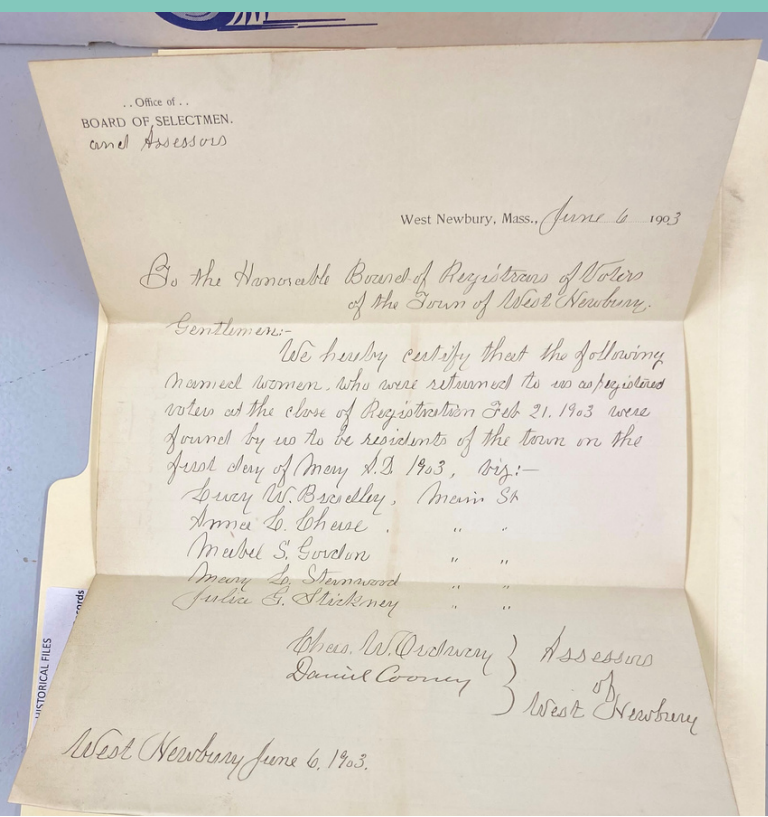 . . Office of . .
BOARD OF SELECTMEN.
and Assessors
West Newbury, Mass., June 6 1903
To the Honorable Board of Registrars of Voters
of the Town of West Newbury.
Gentlemen:-
We hereby certify that the following
named women, who were returned to us as registered
voters at the close of Registration Feb 21, 1903 were
found by us to be residents of the town on the
first day of May A.D. 1903, viz:-
Lucy W. Bradley, Main St
Anna L. Chase . " "
Mabel S. Gordon " "
Mary L. " "
Julia G. Stickney " "
Chas. W. Ordway } Assessors
Daniel Cooney of
} West Newbury
West Newbury June 6, 1903.
HISTORICAL FILES